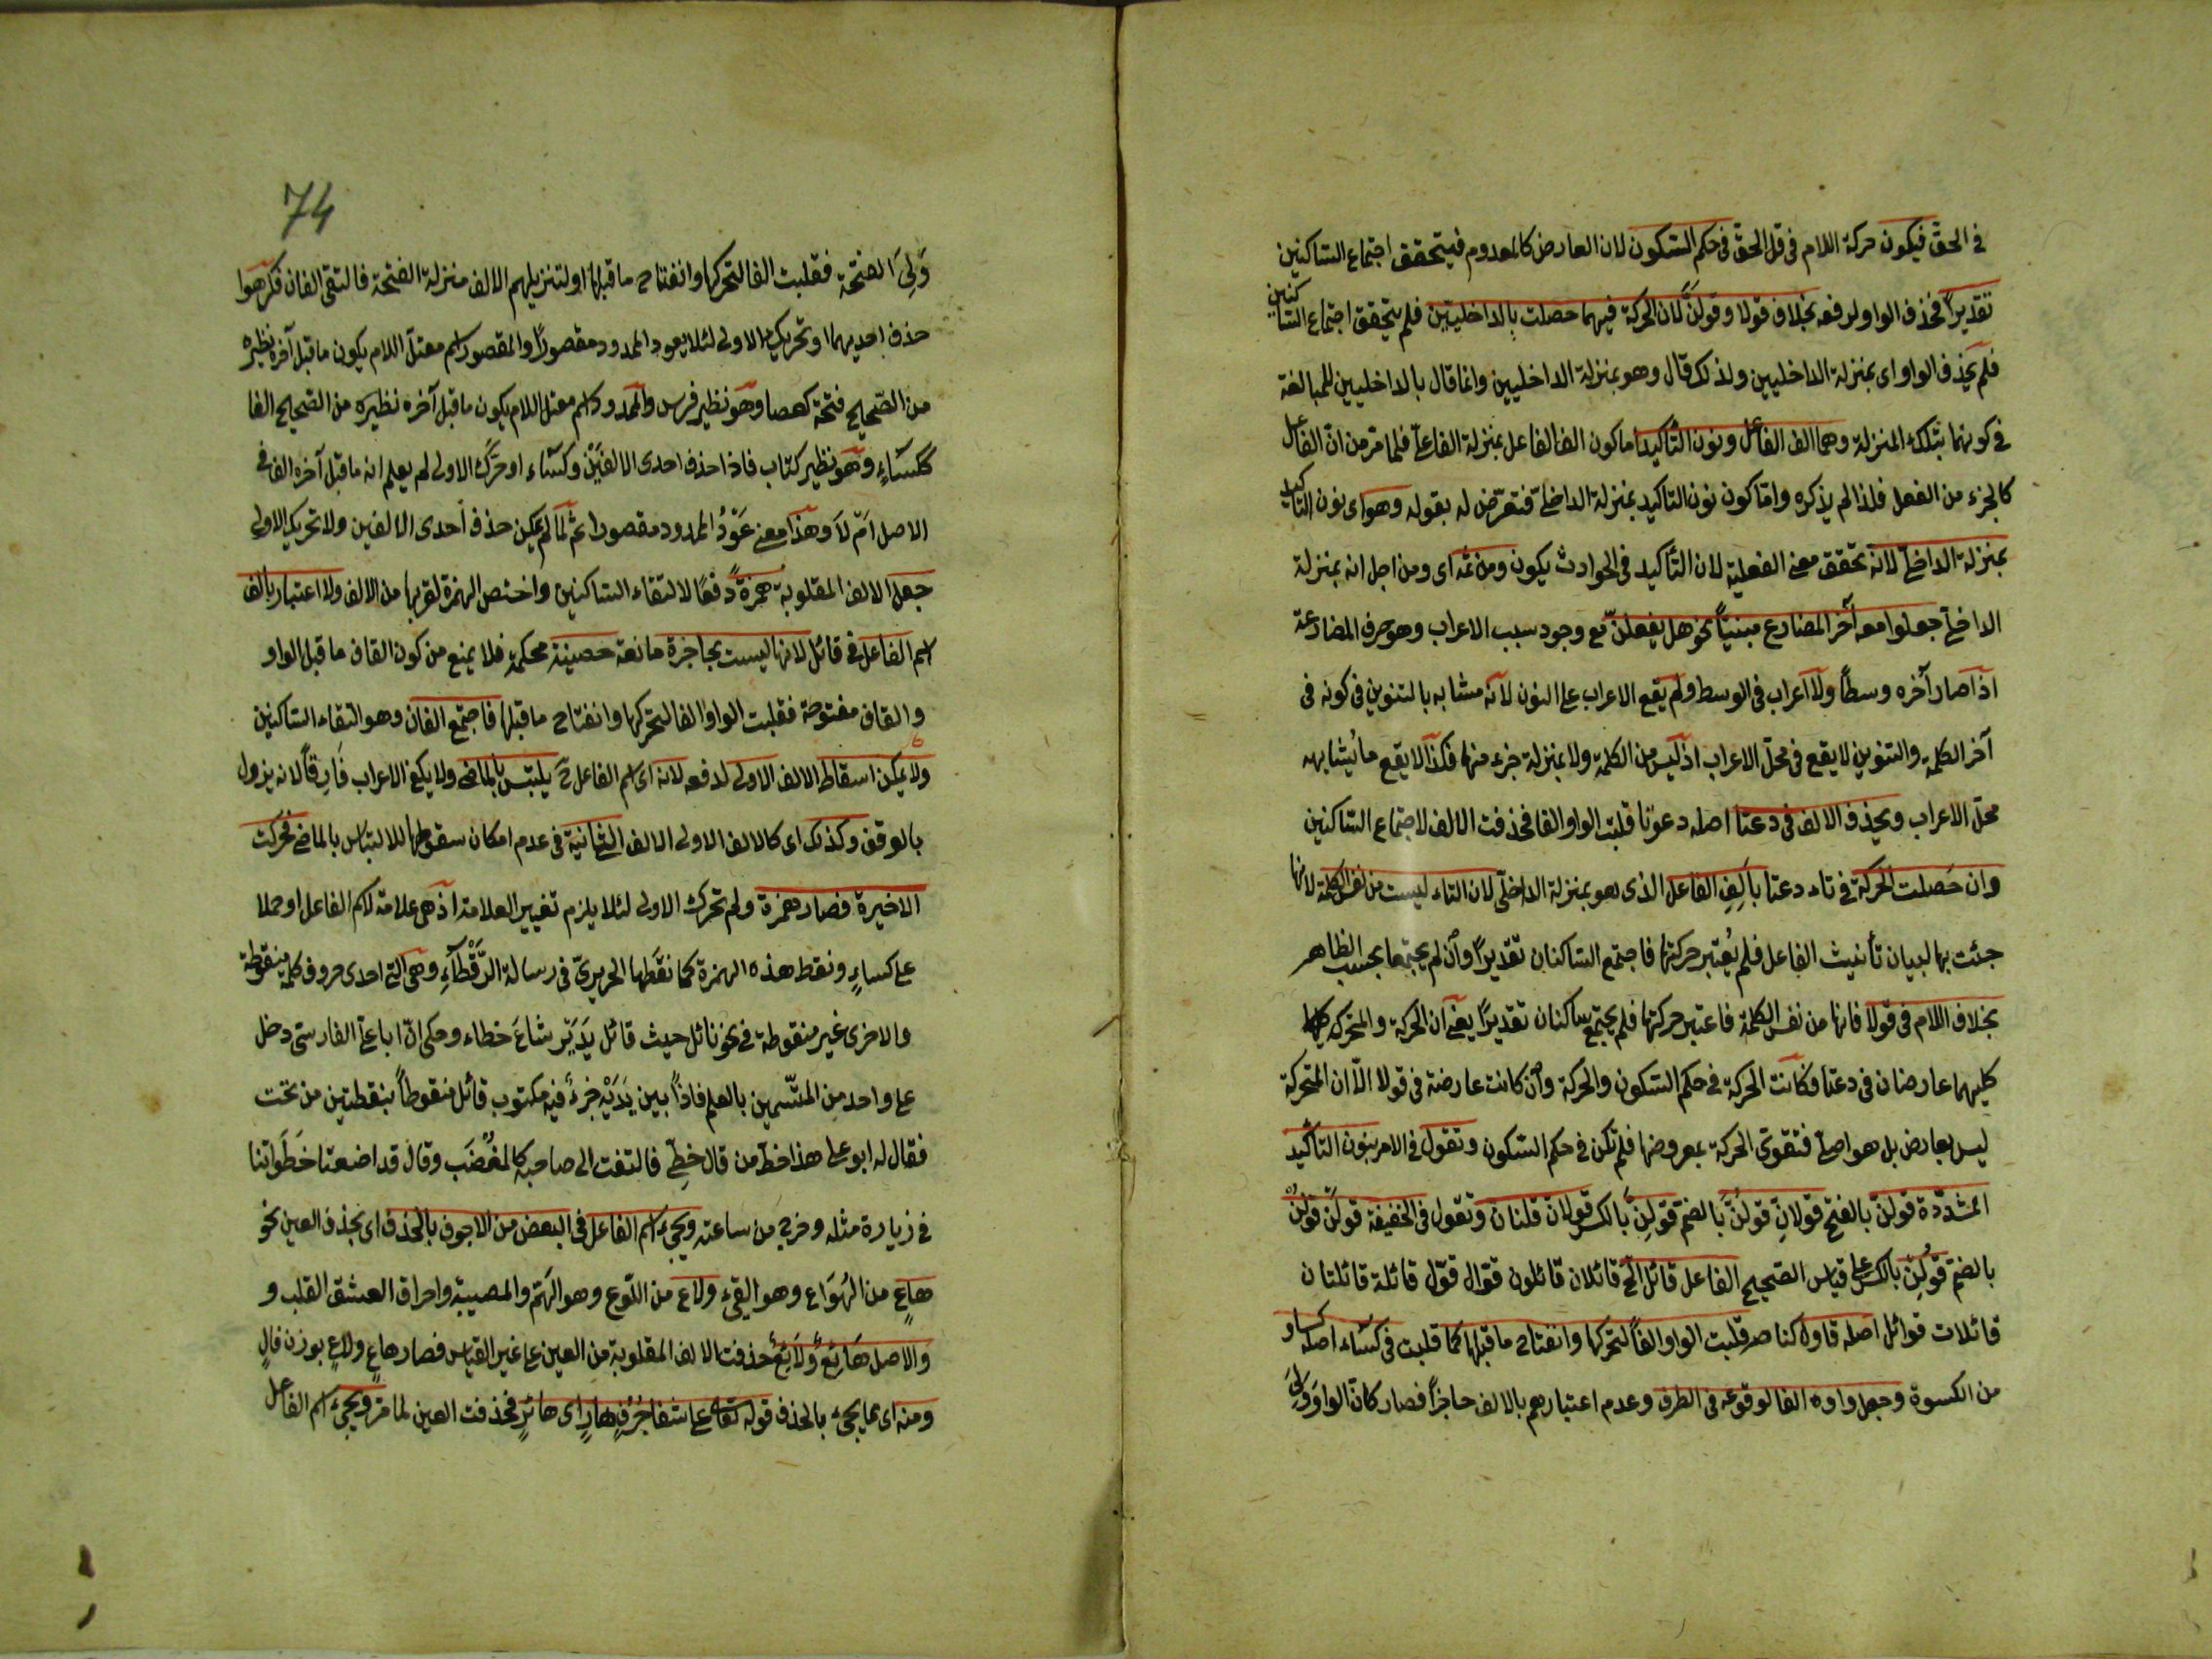 في الحق فيكون حركة اللام في قل الحق في حكم السكون لان العارض كالمعدوم فيتحقق اجتماع الساكنين
تقديراً فحذف الواو لدفعه بخلاف قولا وقولنّ لان الحركة فيهما حصلت بالداخليتين فلم يتحقق اجتماع الساكنين
فلم يحذف الواو اى بمنزلة الداخليين ولذلك قال وهو بمنزلة الداخليين وانما قال بالداخليين للمبالغة
في كونهما بتلك المنزلة وهما الف الفاعل ونون التأكيد اما كون الف الفاعل بمنزلة الفاعل فلما مر من انّ الفاعل
كالجزء من الفعل فلذا لم يذكره واما كون نون التاكيد بمنزلة الداخلى فتعرّض له بقوله وهو اى نون التاكيد
بمنزلة الداخلى لانه تحقق معنى الفعلية لان التأكيد في الحوادث يكون ومن ثمه اى ومن اجل انه بمنزلة
الداخلى جعلوا معه آخر المضارع مبنياً نحو هل يفعلنّ مع وجود سبب الاعراب وهو حرف المضارعة
اذا صار آخره وسطاً ولا اعراب في الوسط ولم يقع الاعراب على النون لانه مشابه بالتنوين في كونه في
آخر الكلمة والتنوين لا يقع في محلّ الاعراب اذ ليس من الكلمة ولا بمنزلة جزء منها فكذا لا يقع ما يُشابهه
محلّ الاعراب ويحذف الالف في دعتا اصله دعوتا قلبت الواو الفا فحذفت الالف لاجتماع الساكنين
وان حَصلت الحركة في تاء دعتا بالِفِ الفاعل الذى هو بمنزلة الداخلى لان التاء ليست من نفس الكلمة لانها
جئت بها لبيان تأنيث الفاعل فلم يُعتبر حركتها فاجتمع الساكنان تقديراً وان لم يجتمعا بحسب الظاهر
بخلاف اللام في قولا فانها من نفس الكلمة فاعتبر حركتها فلم يجتمع ساكنان تقديراً يعنى ان الحركة والمتحرك
كليهما عارضان في دعتا فكانت الحركة في حكم السكون والحركة وان كانت عارضة في قولا الّا ان المتحركة
ليس بعارض بل هو اصلى فتقوى الحركة بمعروضها فلم تكن في حكم السكون وتقول في الامر بنون التأكيد
المشدّدة قولنّ بالفتح قولانِّ قولُنّ بالضم قولِنّ بالكسر قولانّ قلنانّ وتقول في الخفيفة قولَنْ قولُنْ
بالضم قولِنْ بالكسر على قياس الصحيح الفاعل قائل الخ قائلان قائلون قوّال قوّل قائلة قائلتان
قائلات قوائل اصله قاول كناصر قلبت الواو الفاً لتحركها وانفتاح ما قبلها كما قلبت في كساء اصله كساو
من الكسوة وجعل واوه الفا لوقوعه في الطرف وعدم اعتبارهم بالالف حاجزاً فصار كانّ الواو وَلِىَ
74
وَلِىَ الفتحة فقلبت الفا لتحركها وانفتاح ما قبلها او لتنزيلهم الالف منزلة الفتحة فالتقى الفان فكرهوا
حذف احديهما او تحريك الاولى لئلا يعود الممدود مقصوراً والمقصور اسم معتلّ اللام يكون ما قبل آخره نظيره
من الصحيح فتحة كعصا وهو نظير فرس والممدود اسم معتل اللام يكون ما قبل آخره نظيره من الصحيح الفا
ككساءٍ وهو نظير كتاب فاذا حذف احدى الالفَيْن وكساء او حرّك الاولى لم يعلم انه ما قبل آخره الف في
الاصل امْ لاَ وهذا معنى عَوْدُ الممدود مقصورا ثم لما لم يمكن حذف احدى الالفين ولا تحريك الاولى
جعل الالف المقلوبة همزةً دفعًا لالتقاء الساكنين واختص الهمزة لقربها من الالف ولا اعتبار بالف
اسم الفاعل في قائل لانها ليست بحاجزة مانعة حصينة محكمة فلا يمنع من كون القاف ما قبل الواو
والقاف مفتوحة فقلبت الواو الفا لتحركها وانفتاح ما قبلها فاجتمع الفان وهو التقاء الساكنين
ولا يمكن اسقاط الالف الاولى لدفعه لانه اى اسم الفاعل ح يلتبس بالماضى ولا يكفى الاعراب فَارِقاً لانه يزول
بالوقف وكذلك اى كالالف الاولى الالف الثانية في عدم امكان سقوطها للالتباس بالماضى فحركت
الاخيرة فصار همزة ولم تحرك الاولى لئلا يلزم تغيير العلامة اذ هى علامة لاسم الفاعل او حملا
على كساءٍ ونقط هذه الهمزة كما نقَطها الحريرىّ في رسالة الرَّقْطآءِ وهى التى احدى حروف كلمة منقوطة
والاخرى غير منقوطة في نحو نائل حيث قائل يَدَيْه شاع خطاء وحكى انّ ابا على الفارسى دخل
على واحد من المتّسمين بالعلم فاذاً بين يَدَيْه جزءٌ فيه مكتوب قائل منقوطاً بنقطتين من تحت
فقال له ابو على هذا خط من قال خطى فالتفت الى صاحبه كالمغْضَب وقال قد اضعنا خَطَواتنا
في زيارة مثله وخرج من ساعته ويجىء اسم الفاعل في البعض من الاجوف بالحذف اى بحذف العين نحو
هاعٍ من الهُوَاع وهو القىء ولاع من اللّوع وهو الهَتم والمصيبة واحراق العشق القلب و
والاصل هَائِعٌ ولَائِعٌ حذفت الالف المقلوبة من العين على غير القياس فصار هاعٍ ولاعٍ بوزن فالٍ
ومنه اى مما يجىء بالحذف قوله تعالى على شفا جُرُفٍ هارٍ اى هائرٍ فحذفت العين لما مر ويجىء اسم الفاعل